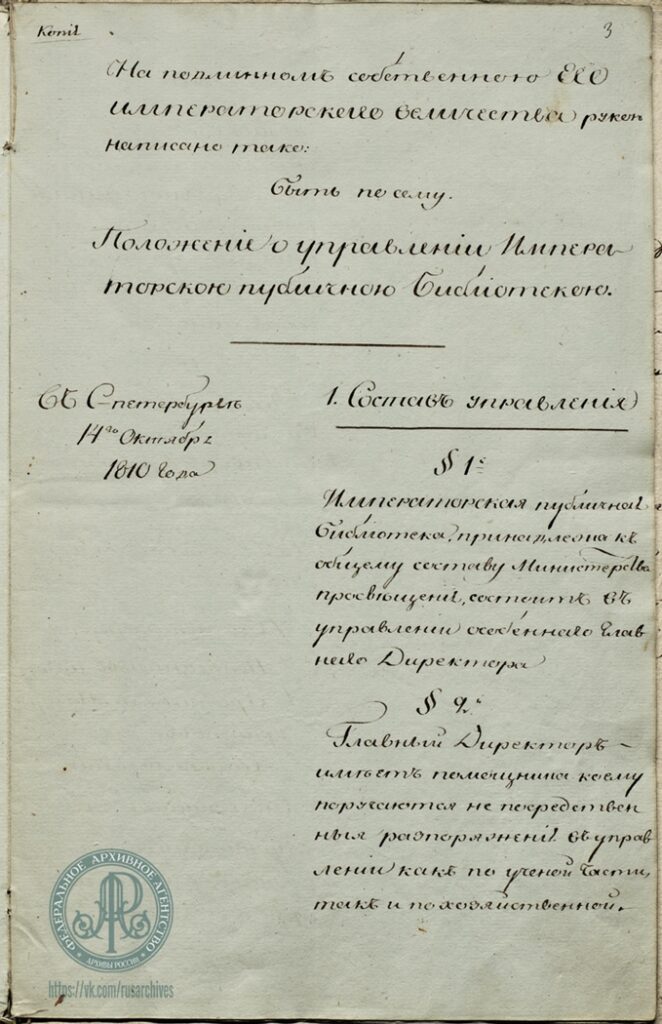 Копiя
3
На подлинномъ собственною ЕГО
императорскаго величества рукою
написано тако:
быть по сему.
Положенiе о управленiи Импера-
торскою публичною Библiотекою.
въ С-петербургѣ
14го Октября
1810 Года
1. Составъ управленiя
§ 1й
Императорская публичная
библiотека, принадлежа къ
общему составу Министерства
просвѣщенiя, состоитъ въ
управленiи особеннаго Глав
наго Директора
§ 2й
Главный Директоръ
имѣетъ помощника коему
поручаются не посредствен
ныя распоряженiя въ управ
ленiи какъ по ученой части,
такъ и по хозяйственной.
ФЕДЕРАЛЬНОЕ АРХИВНОЕ АГЕНТСТВО
АРХИВЫ РОССИИ
https://vk.com/rusarchives